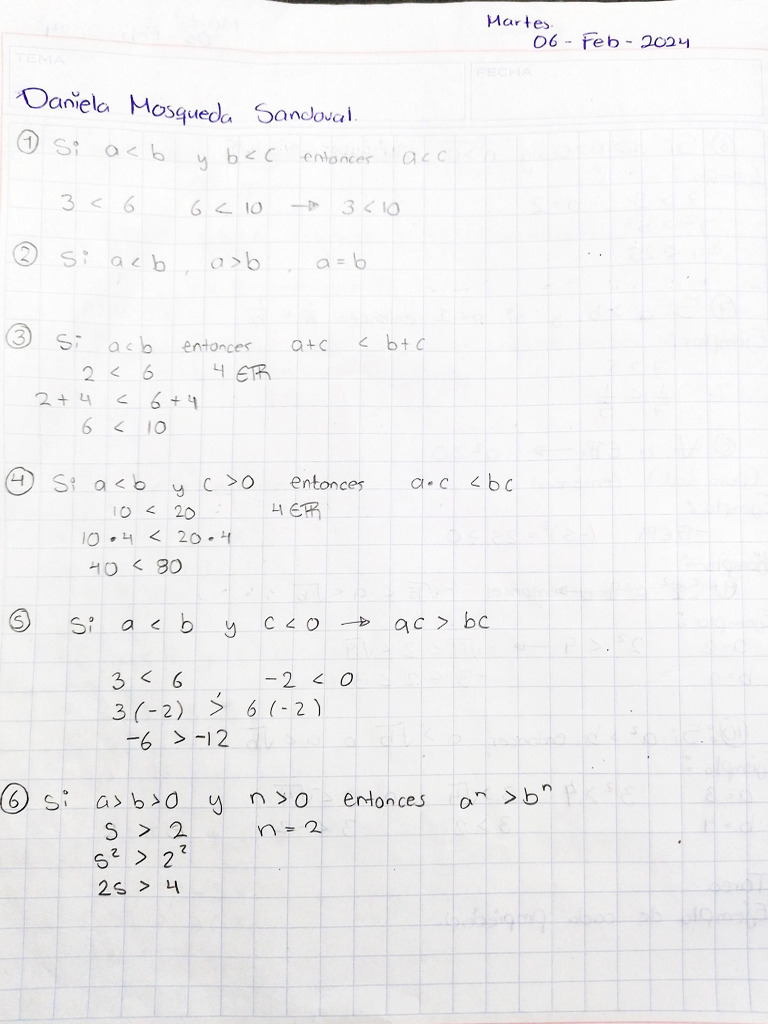 Martes.
06 - Feb - 2024
TEMA
FECHA
Daniela Mosqueda Sandoval.
① Si a < b y b < c entonces a < c
3 < 6 6 < 10 → 3 < 10
② Si a < b , a > b , a = b
③ Si a < b entonces a+c < b+c
2 < 6 4 ∈ ℝ
2 + 4 < 6 + 4
6 < 10
④ Si a < b y c > 0 entonces a•c < bc
10 < 20 4 ∈ ℝ
10 • 4 < 20 • 4
40 < 80
⑤ Si a < b y c < 0 → ac > bc
3 < 6 -2 < 0
3(-2) > 6(-2)
-6 > -12
⑥ Si a > b > 0 y n > 0 entonces aⁿ > bⁿ
5 > 2 n = 2
5² > 2²
25 > 4